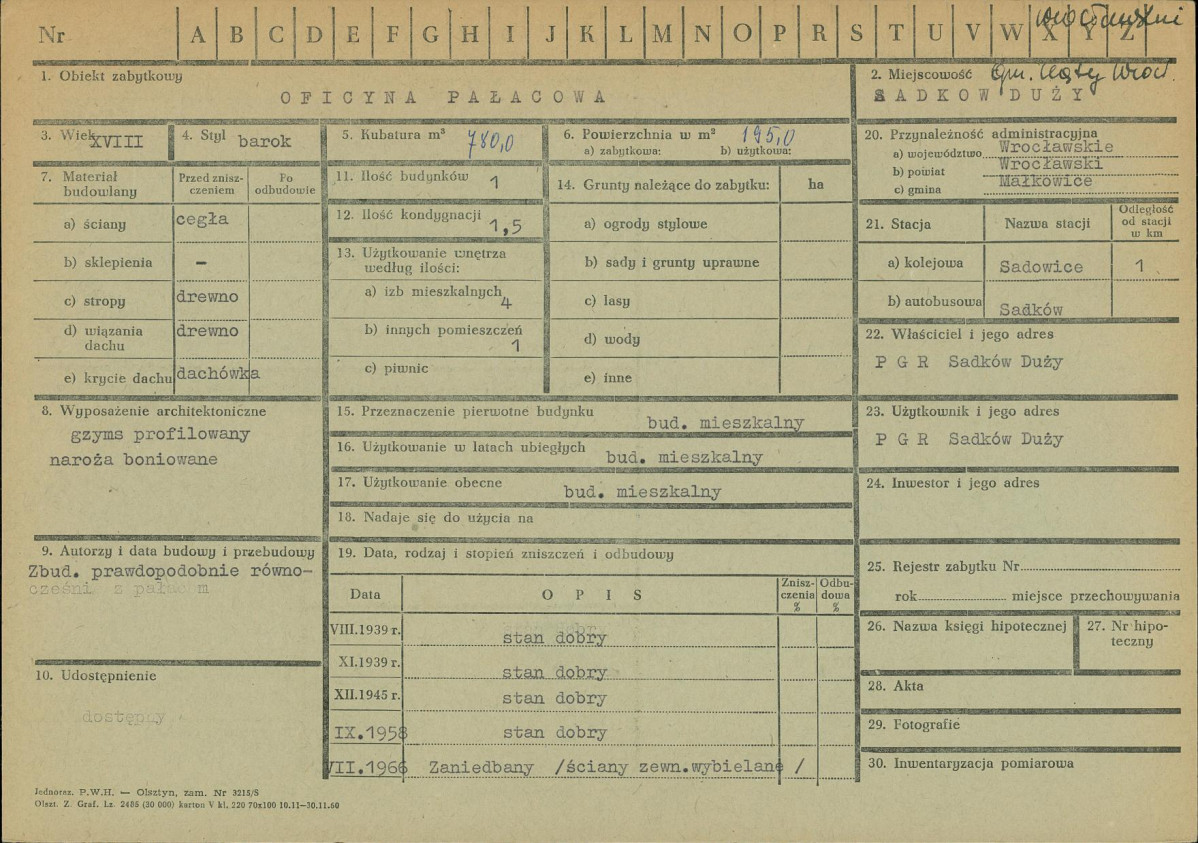 Nr A B C D E F G H I J K L M N O P R S T U V W X Y Z
1. Obiekt zabytkowy
OFICYNA PAŁACOWA
2. Miejscowość gm. Kąty Wrocł.
SADKOW DUŻY
3. Wiek XVIII
4. Styl barok
5. Kubatura m³ 780,0
6. Powierzchnia w m² 195,0
a) zabytkowa: b) użytkowa:
7. Materiał budowlany
Przed zniszczeniem
Po odbudowie
a) ściany cegła
b) sklepienia –
c) stropy drewno
d) wiązania dachu drewno
e) krycie dachu dachówka
8. Wyposażenie architektoniczne
gzyms profilowany
naroża boniowane
9. Autorzy i data budowy i przebudowy
Zbud. prawdopodobnie równo-
cześni z pałacem
10. Udostępnienie
dostępny
11. Ilość budynków 1
12. Ilość kondygnacji 1,5
13. Użytkowanie wnętrza
według ilości:
a) izb mieszkalnych 4
b) innych pomieszczeń 1
c) piwnic
14. Grunty należące do zabytku: ha
a) ogrody stylowe
b) sady i grunty uprawne
c) lasy
d) wody
e) inne
15. Przeznaczenie pierwotne budynku bud. mieszkalny
16. Użytkowanie w latach ubiegłych bud. mieszkalny
17. Użytkowanie obecne bud. mieszkalny
18. Nadaje się do użycia na
19. Data, rodzaj i stopień zniszczeń i odbudowy
Data OPIS Zniszczenia % Odbudowa %
VIII.1939 r. stan dobry
XI.1939 r. stan dobry
XII.1945 r. stan dobry
IX.1958 stan dobry
VII.1966 Zaniedbany /ściany zewn.wybielane /
20. Przynależność administracyjna
a) województwo Wrocławskie
b) powiat Wrocławski
c) gmina Małkowice
21. Stacja Nazwa stacji Odległość od stacji w km
a) kolejowa Sadowice 1
b) autobusowa Sadków
22. Właściciel i jego adres
P G R Sadków Duży
23. Użytkownik i jego adres
P G R Sadków Duży
24. Inwestor i jego adres
25. Rejestr zabytku Nr
rok miejsce przechowywania
26. Nazwa księgi hipotecznej
27. Nr hipo-
teczny
28. Akta
29. Fotografie
30. Inwentaryzacja pomiarowa
Jednoraz. P.W.H. — Olsztyn, zam. Nr 3215/S
Olszt. Z. Graf. Lz. 2405 (30 000) karton V kl. 220 70x100 10.11—30.11.60